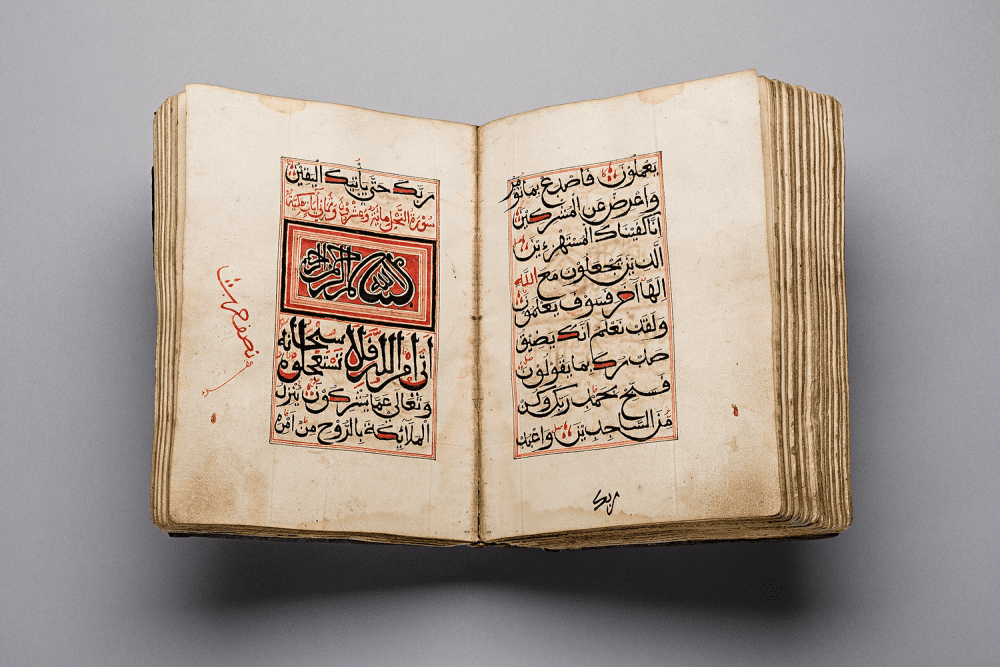 يعملون فاصدع بما تؤمر
وَاَعرض عن المشركين
انا كفيناك المستهزءين
الذين يجعلون مع الله
الها اخر فسوف يعلمون
ولقد نعلم انك يضيق
صدرك بما يقولون
فسبح بحمد ربك وكن
من الساجدين واعبد
ربك
ربك حتى يأتيك اليقين
سورة النحل مائة وعشرون وثمان آيات مكية
بسم الله الرحمن الرحيم
اتى امر الله فلا تستعجلوه سبحانه
وتعالى عما يشركون ينزل
الملائكة بالروح من امره
نصف حزب